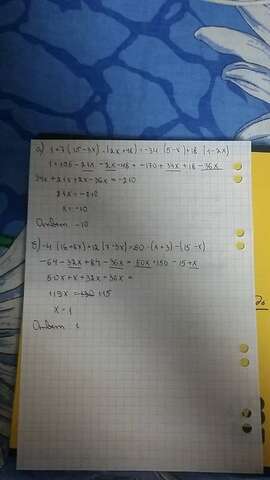 а) 1+7(15-3x)-(2x+48)=-34(5-x)+18(1-2x)
1+105-21x-2x-48=-170+34x+18-36x
34x+21x+2x-36x=-210
21x=-210
x=-10
Ответ -10
б)-4(16+8x)+12(7-3x)=50(x+3)-(15-x)
-64-32x+84-36x=50x+150-15+x
50x+x+32x+36x=
119x= 115
x=1
Ответ 1